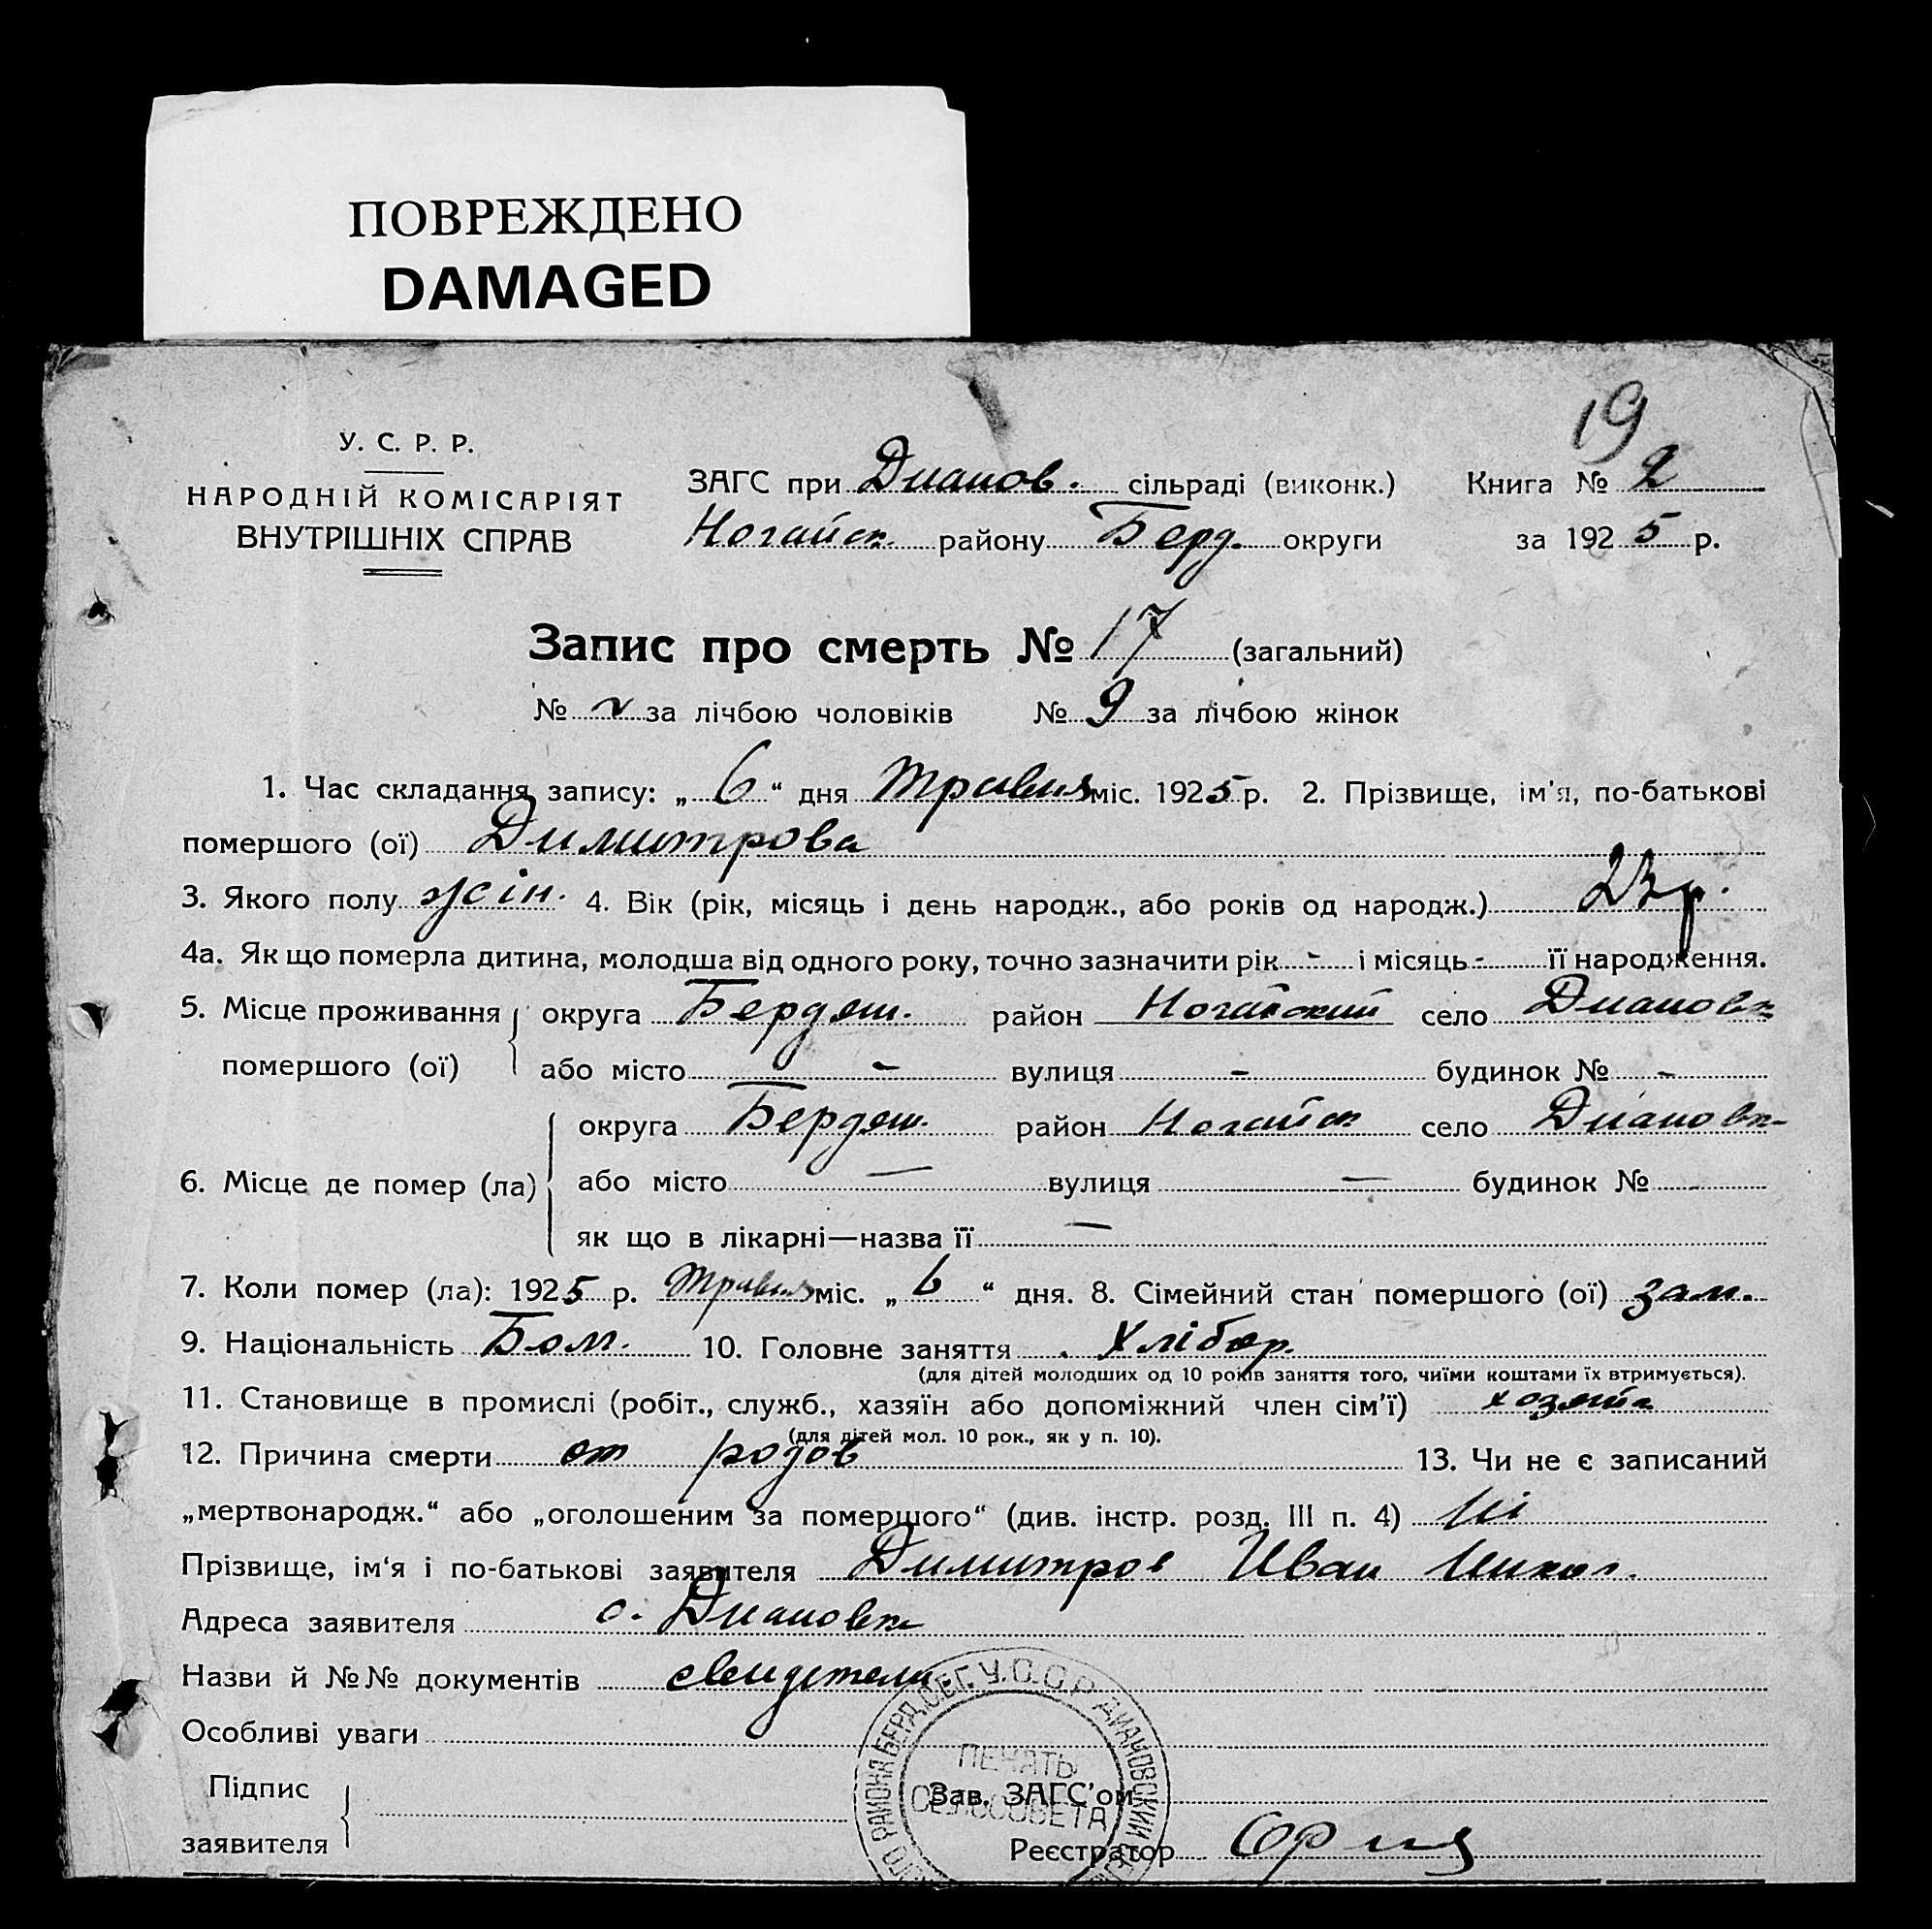 ПОВРЕЖДЕНО
DAMAGED
19
У. С. Р. Р.
НАРОДНІЙ КОМІСАРІЯТ
ВНУТРІШНІХ СПРАВ
ЗАГС при Дианов. сільраді (виконк.) Книга № 2
Ногайск. району Берд. округи за 1925 р.
Запис про смерть № 17 (загальний)
№ за лічбою чоловіків № 9 за лічбою жінок
1. Час складання запису: „6“ дня травня міс. 1925 р. 2. Прізвище, ім'я, по-батькові
помершого (ої) Димитрова
3. Якого полу жін. 4. Вік (рік, місяць і день народж., або років од народж.) 23 р.
4а. Як що померла дитина, молодша від одного року, точно зазначити рік - і місяць - її народження.
5. Місце проживання округа Бердян. район Ногайский село Диановк
помершого (ої) або місто - вулиця - будинок № -
округа Бердян. район Ногайск село Диановк-
6. Місце де помер (ла) або місто — вулиця — будинок № -
як що в лікарні—назва її —
7. Коли помер (ла): 1925 р. травня міс. „6“ дня. 8. Сімейний стан помершого (ої) зам.
9. Національність Бол. 10. Головне заняття Хлібор.
(для дітей молодших од 10 років заняття того, чиїми коштами їх втримується).
11. Становище в промислі (робіт., служб., хазяїн або допоміжний член сім'ї)
(для дітей мол. 10 рок., як у п. 10).
12. Причина смерти от родов 13. Чи не є записаний
„мертвонародж.“ або „оголошеним за помершого“ (див. інстр. розд. III п. 4) Ні
Прізвище, ім'я і по-батькові заявителя Димитров Иван Никол.
Адреса заявителя с. Диановка
Назви й №№ документів свидетели
Особливі уваги
Підпис
заявителя
Зав. ЗАГС'ом
Реєстратор
РАЙОНА БЕРД. У.С.С.Р ДИАНОВСКИЙ
ПЕЧАТЬ
СЕЛЬСОВЕТА